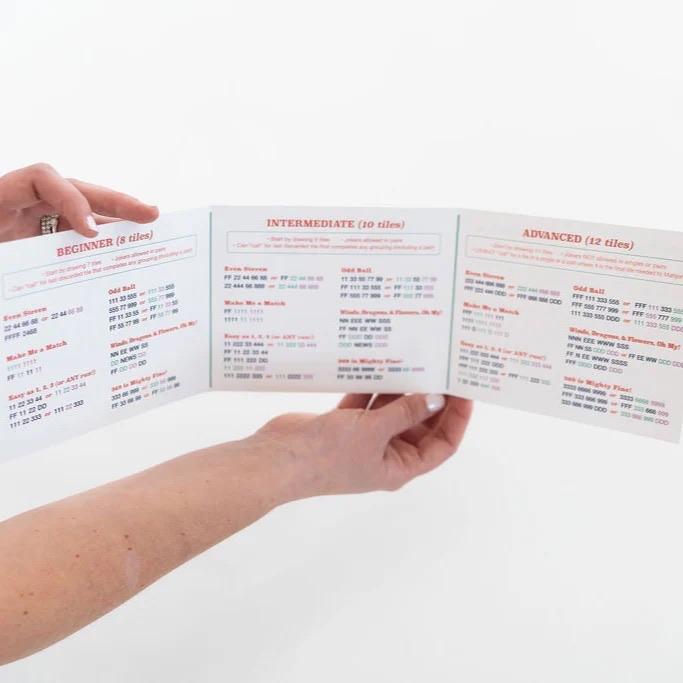 BEGINNER (8 tiles)
- Start by drawing 7 tiles - Jokers allowed in pairs
- Can "call" for last discarded tile that completes any grouping (including a pair)
Even Steven
22 44 66 88 or 22 44 66 88
FFFF 2468
Make Me a Match
1111 1111
FF 11 11 11
Easy as 1, 2, 3 (or ANY run!)
11 22 33 44 or 11 22 33 44
FF 11 22 DD
111 22 333 or 111 22 333
Odd Ball
111 33 555 or 111 33 555
555 77 999 or 555 77 999
FF 11 33 55 or FF 11 33 55
FF 55 77 99 or FF 55 77 99
Winds, Dragons, & Flowers, Oh My!
NN EE WW SS
DD NEWS DD
FF DDD DDD
369 is Mighty Fine!
333 66 999 or 333 66 999
FF 33 66 99 or FF 33 66 99
INTERMEDIATE (10 tiles)
- Start by drawing 9 tiles - Jokers allowed in pairs
- Can "call" for last discarded tile that completes any grouping (including a pair)
Even Steven
FF 22 44 66 88 or FF 22 44 66 88
222 44 66 888 or 222 44 66 888
Make Me a Match
FF 1111 1111
1111 11 1111
Easy as 1, 2, 3 (or ANY run!)
11 222 33 444 or 11 222 33 444
FF 11 22 33 44
FF 111 222 DD
11 222 11 222
111 2222 333 or 111 2222 333
Odd Ball
11 33 55 77 99 or 11 33 55 77 99
FF 111 33 555 or FF 111 33 555
FF 555 77 999 or FF 555 77 999
Winds, Dragons, & Flowers, Oh My!
NNN EE WW SSS
FF NN EE WW SS
FF DDD DD DDD
DDD NEWS DDD
369 is Mighty Fine!
3333 66 9999 or 3333 66 9999
FF 33 66 99 DD
ADVANCED (12 tiles)
- Start by drawing 11 tiles - Jokers NOT allowed in singles or pairs
Even Steven
222 444 666 888 or 222 444 666 888
FFF 222 444 DDD or FFF 666 888 DDD
Make Me a Match
Easy as 1, 2, 3 (or ANY run!)
Odd Ball
FFF 111 333 555 or FFF 111 333 555
FFF 555 777 999 or FFF 555 777 999
111 333 555 DDD or 111 333 555 DDD
Winds, Dragons, & Flowers, Oh My!
NNN EEE WWW SSS
NN SS DDD DDD or FF EE WW DDD DDD
FF N EE WWW SSSS
FFF DDD DDD DDD
369 is Mighty Fine!
3333 6666 9999 or 3333 6666 9999
FFF 333 666 999 or FFF 333 666 999
333 666 999 DDD or 333 666 999 DDD